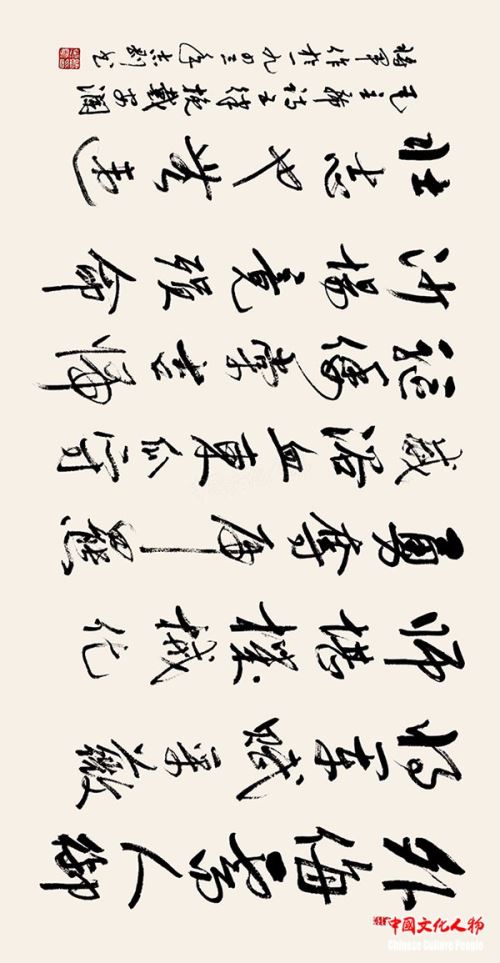 外侮需人御
将军赋采薇
师称机械化
勇夺虎罴
威浴血东瓜守
驱倭棠吉归
沙场竟殒命
壮志也无违
毛主席诗五律挽戴安澜
将军作于一九四三年
中國文化人物
Chinese Culture People